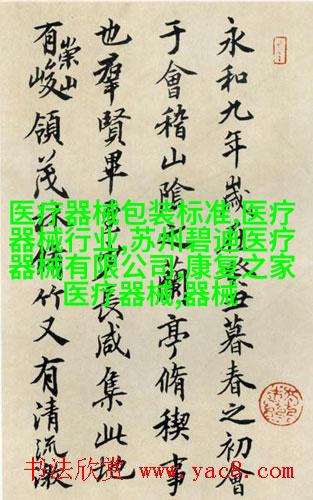 永和九年歲在癸丑暮春之初會
于會稽山陰之蘭亭脩稧事
也羣賢畢至少長咸集此地
有崇山峻領茂林脩竹又有清流激
医疗器械包装标准,医疗
器械行业,苏州碧迪医疗
器械有限公司,康复之家
医疗器械,器械
书法欣赏 www.yac8.com